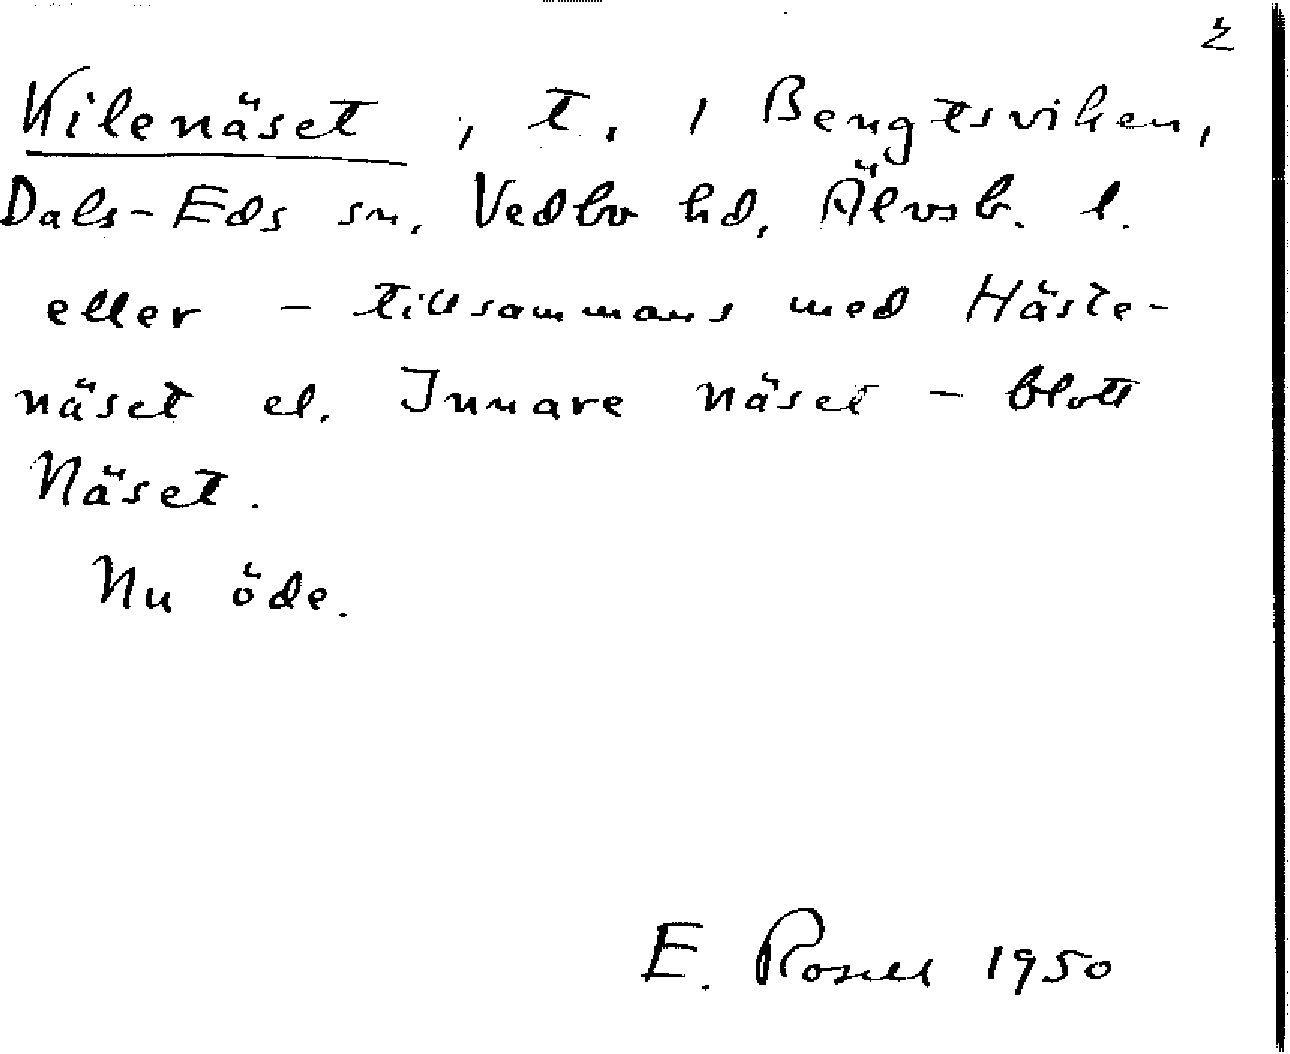 2
Kilenäset, t. i Bengtsviken,
Dals-Eds sn, Vedbo hd, Älvsb. l.
eller - tillsammans med Häste-
näset el. Innare näset - blott
Näset.
Nu öde.
E. Rosell 1950